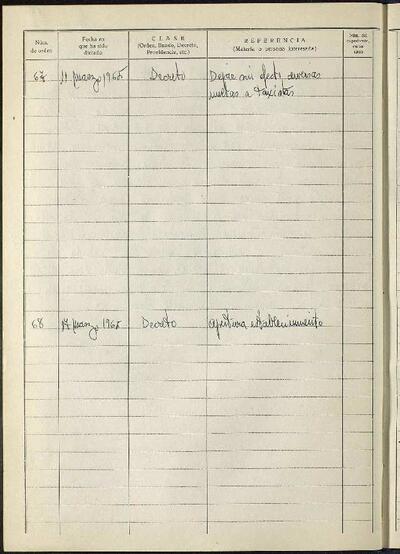 Núm. de orden
Fecha en que ha sido dictada
CLASE
(Orden, Bando, Decreto, Providencia, etc.)
REFERENCIA
(Materia o persona interesada)
Núm. del expediente,
67 11 Marzo, 1965 Decreto Dejar sin efecto diversas
multas a taxistas
68 17 Marzo, 1965 Decreto Apertura establecimiento